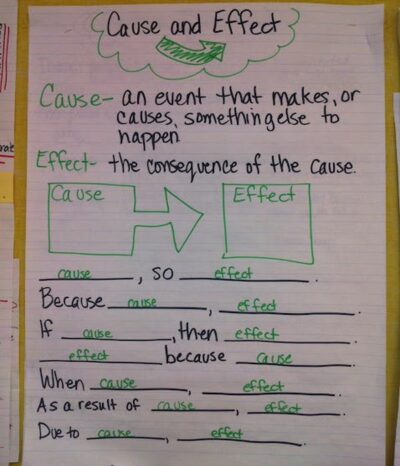 Cause and Effect
Cause- an event that makes, or
causes, something else to
happen
Effect- the consequence of the cause.
Cause Effect
cause, so effect.
Because cause, effect.
If cause, then effect.
effect because cause.
When cause, effect.
As a result of cause, effect.
Due to cause, effect.